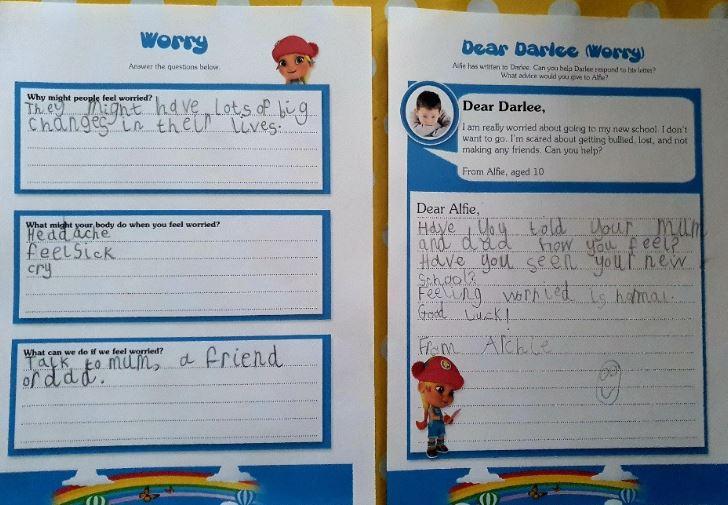 Worry
Answer the questions below.
Why might people feel worried?
They might have lots of big
changes in their lives.
What might your body do when you feel worried?
Headache
feel sick
cry
What can we do if we feel worried?
Talk to mum, a friend
or dad.
Dear Darlee (Worry)
Alfie has written to Darlee. Can you help Darlee respond to his letter?
What advice would you give to Alfie?
Dear Darlee,
I am really worried about going to my new school. I don't
want to go. I'm scared about getting bullied, lost, and not
making any friends. Can you help?
From Alfie, aged 10
Dear Alfie,
Have you told your mum
and dad how you feel?
Have you seen your new
school?
Feeling worried is normal.
Good Luck!
From Archie